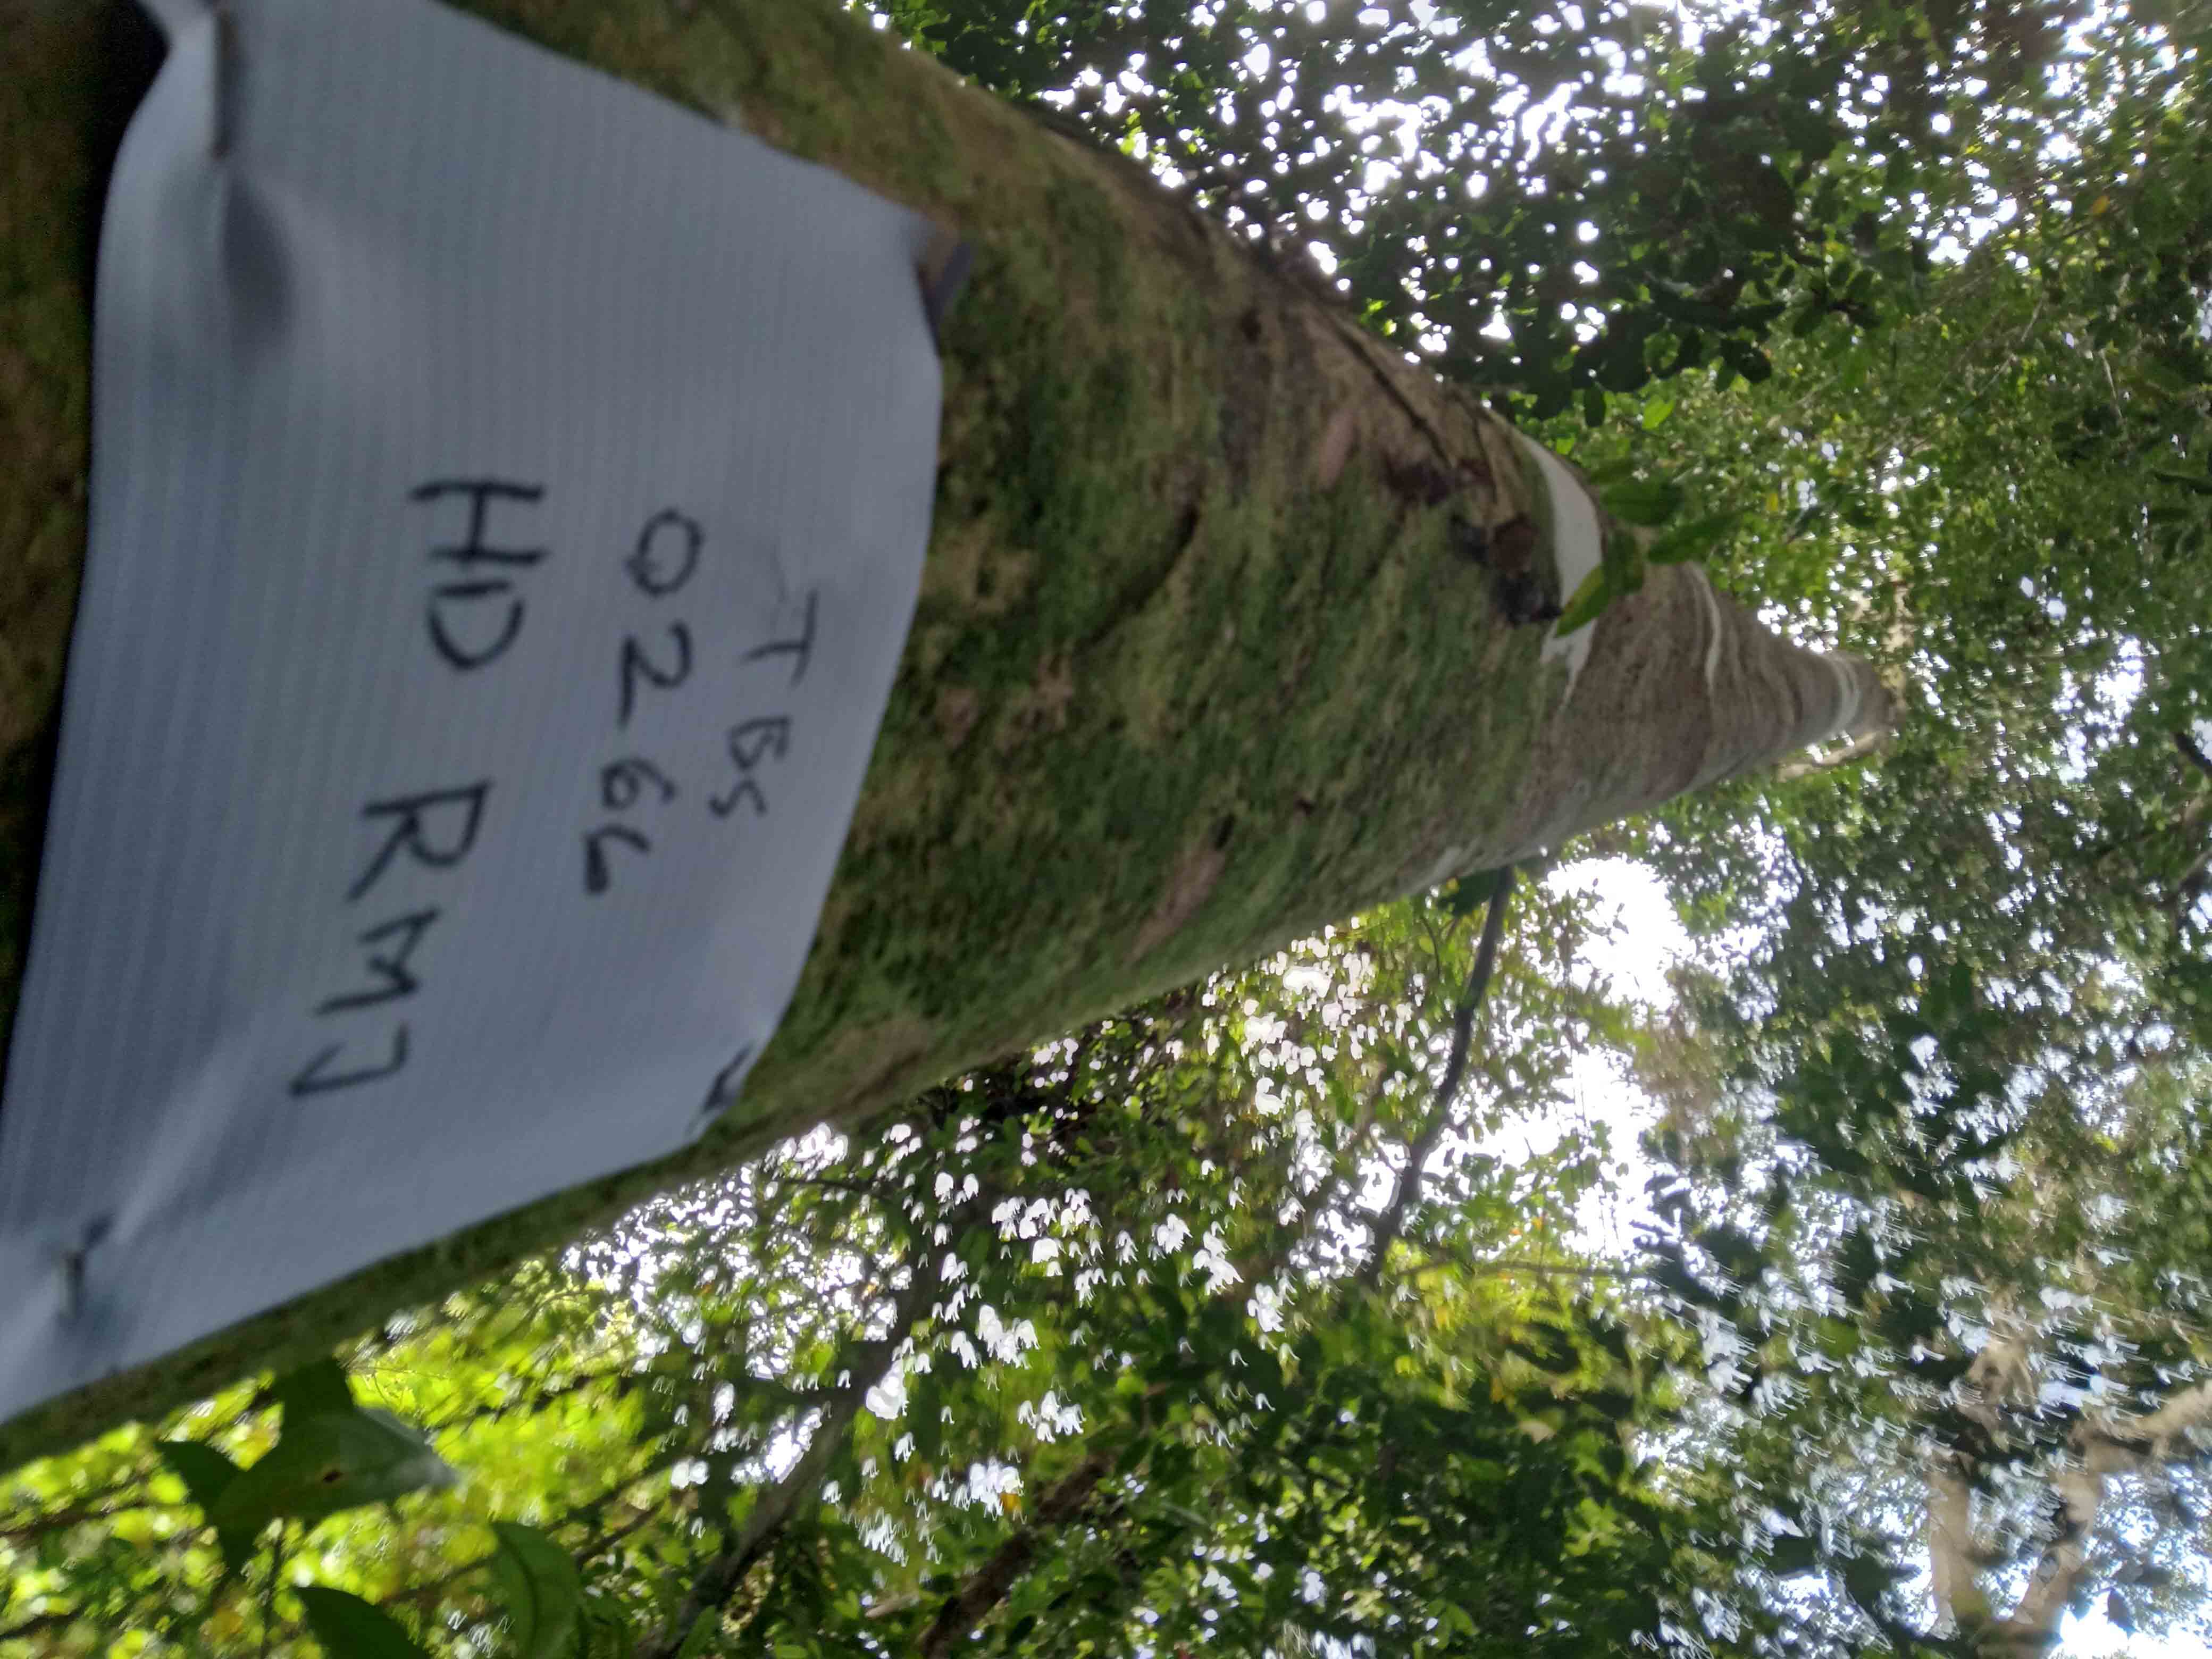 TBS
0266
HD RMJ